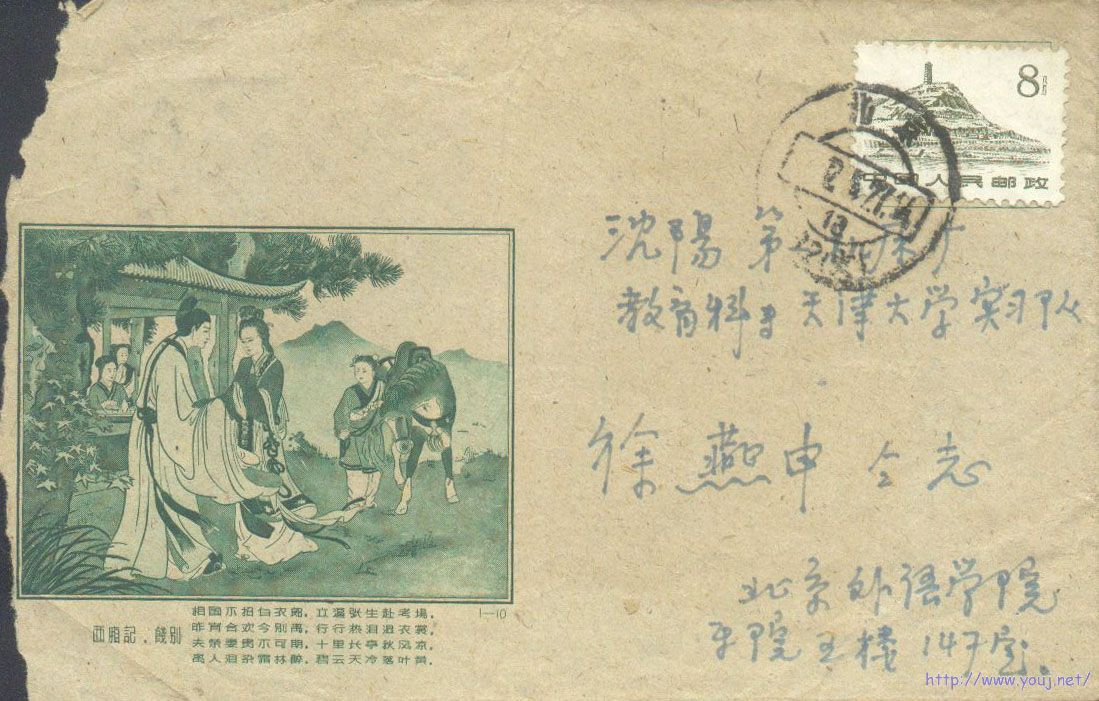 8
中国人民邮政
北京
沈陽第
教育科 天津大学实习队
徐燕申仝志
北京外语学院
147室。
西廂記．餞別
1—10
相国不招白衣 ，立逼张生赴考場，
昨宵合欢今別离，行行热泪洒衣裳，
夫榮妻貴不可期，十里长亭秋风凉，
离人泪染霜林醉，碧云天冷落叶黄。
http://www.youj.net/